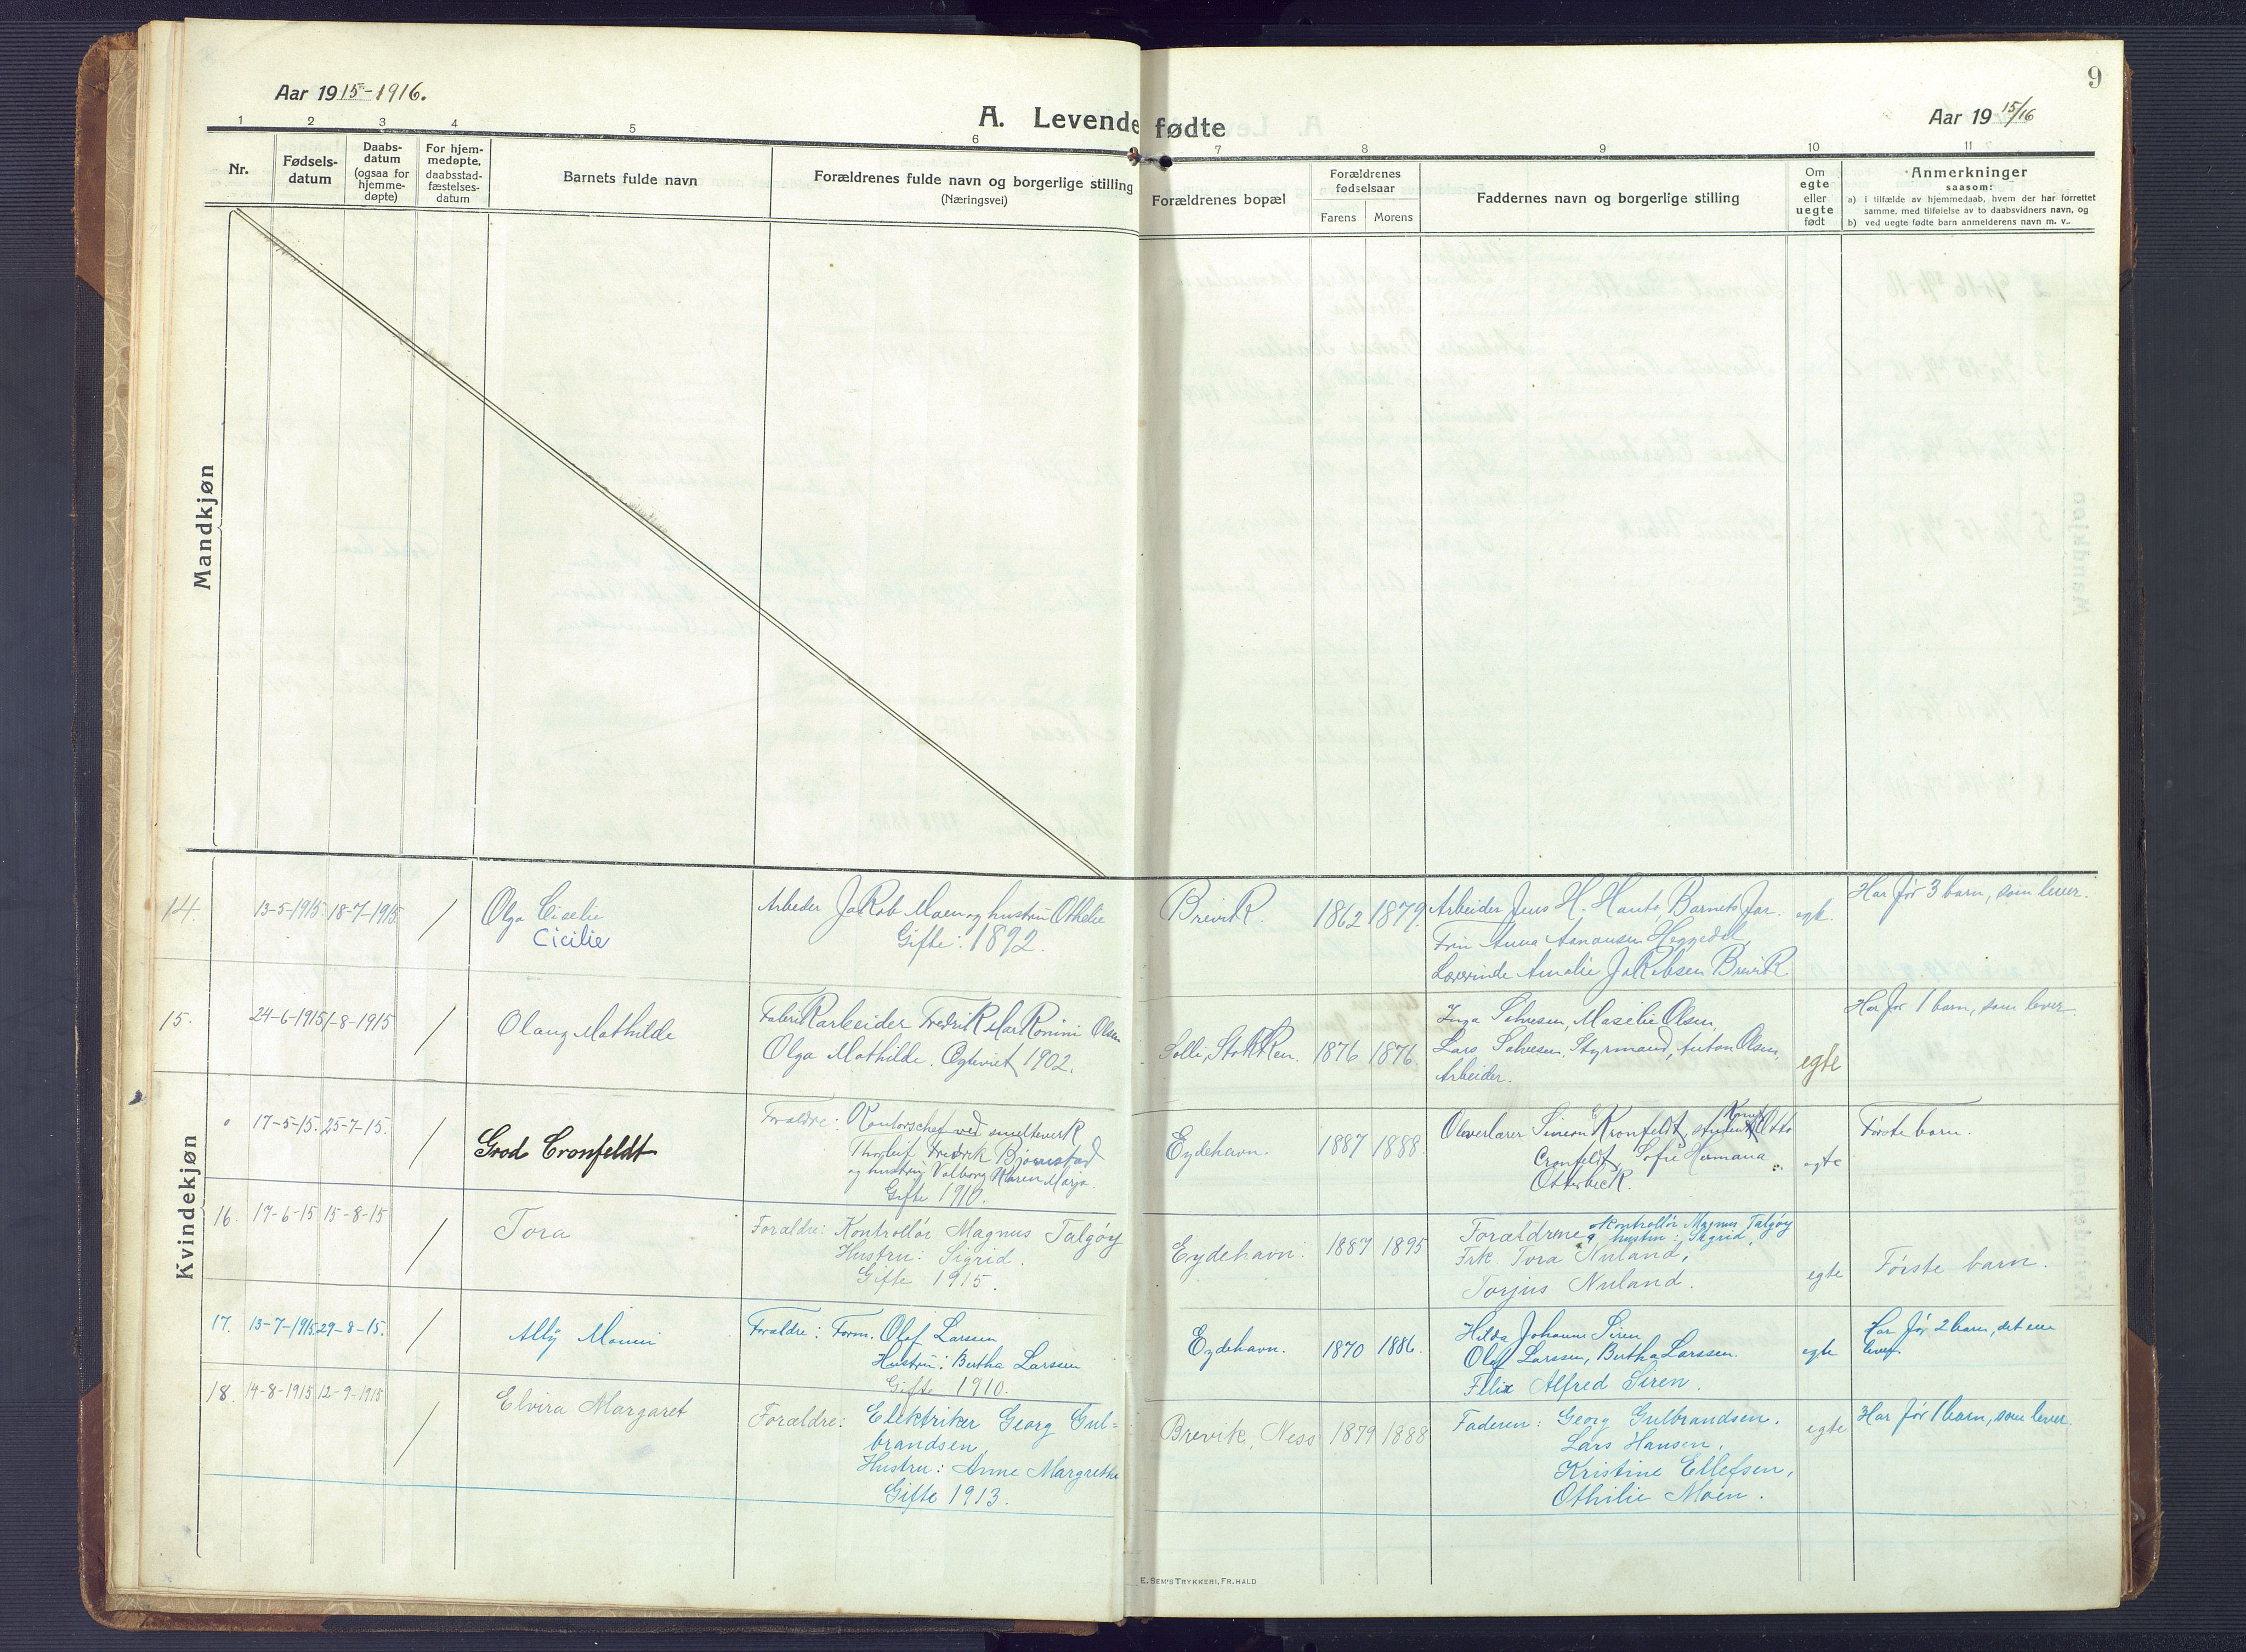 9
Aar 1915-1916.
A. Levende fødte
Aar 19 15/16
1 2 3 4 5 6 7 8 9 10 11
Nr.
Fødsels-
datum
Daabs-
datum
(ogsaa for
hjemme-
døpte)
For hjem-
medøpte,
daabsstad-
fæstelses-
datum
Barnets fulde navn
Forældrenes fulde navn og borgerlige stilling
(Næringsvei)
Forældrenes bopæl
Forældrenes
fødselsaar
Farens Morens
Faddernes navn og borgerlige stilling
Om
egte
eller
uegte
født
Anmerkninger
saasom:
a) I tilfælde av hjemmedaab, hvem der har forrettet
samme, med tilføielse av to daabsvidners navn, og
b) ved uegte fødte barn anmelderens navn m. v..
Mandkjøn
Kvindekjøn
14. 13-5-1915 18-7-1915 / Olga Ciselie
Cicilie
Arbeder Jakob Moen og hustru Othelie
Gifte: 1892.
Brevik. 1862 1879.
Arbeider Jens H. Hauto, Barnets far.
Frøi Anna Aanonsen Heggedal,
Lærerinde Amalie Jakobsen Brevik
egte.
Har før 3 barn, som lever.
15. 24-6-1915 1-8-1915 / Olaug Mathilde
Fabrikarbeider Fredrik Markonini Olsen
Olga Mathilde. Egteviet 1902.
Solli, Stokken. 1876 1876.
Inga Salvesen, Maselie Olsen,
Lars Salvesen, Styrmand, Anton Olsen,
Arbeider.
egte
Har før 1 barn, som lever
0 17-5-15. 25-7-15. / Grod Cronfeldt
Foraldre: Kontorschef ved smelteverk
Thorleif Fredrik Bjørnstad
og hustru Valborg Karen Marja.
Gifte 1910.
Eydehavn. 1887 1888
Overlærer Simeon Kronfeldt, student Knut Otto
Cronfeldt, Sofie Hermana
Otterbeck.
egte
Første barn.
16. 17-6-15 15-8-15 / Tora
Forældre: Kontrollør Magnus Talgøy
Hustru: Sigrid.
Gifte 1915.
Eydehavn. 1887 1895
Forældrene Kontrollør Magnus Talgøy
& hustru: Sigrid,
Frk Tora Nuland,
Torjus Nuland.
egte
Første barn.
17. 13-7-1915 29-8-15. / Ally Monni
Foraldre: Form. Olof Larssen
Hustru: Bertha Larssen
Gifte 1910.
Eydehavn. 1870 1886.
Hilda Johanne Siren
Olof Larssen, Bertha Larssen.
Felix Alfred Siren.
egte
Har før 2 barn, det ene
lever.
18. 14-8-1915 12-9-1915 / Elvira Margaret
Forældre: Elektriker Georg Gul-
brandsen,
Hustru: Anne Margrethe
Gifte 1913.
Brevik, Ness 1879 1888
Faderen: Georg Gulbrandsen.
Lars Hansen,
Kristine Ellefsen,
Othilie Moen.
egte
Har før 1 barn, som lever.
E. SEM'S TRYKKERI, FR.HALD